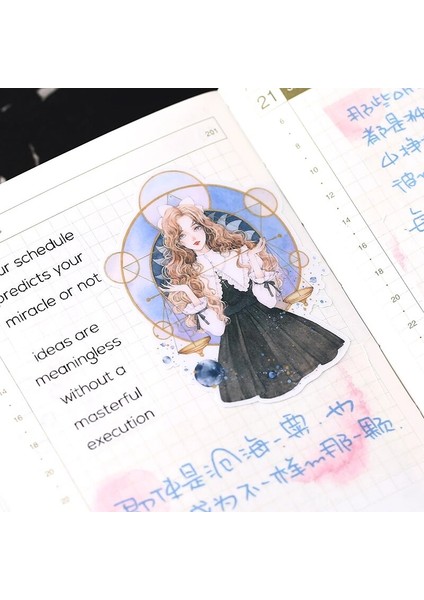 201
ur schedule
predicts your
miracle or not
ideas are
meaningless
without a
masterful
execution
14
16
18
20
22
即使是沧海一粟,也
成为不一样的那一颗.
21
那些
都是
6
8
10
12
14
16
18
20
22